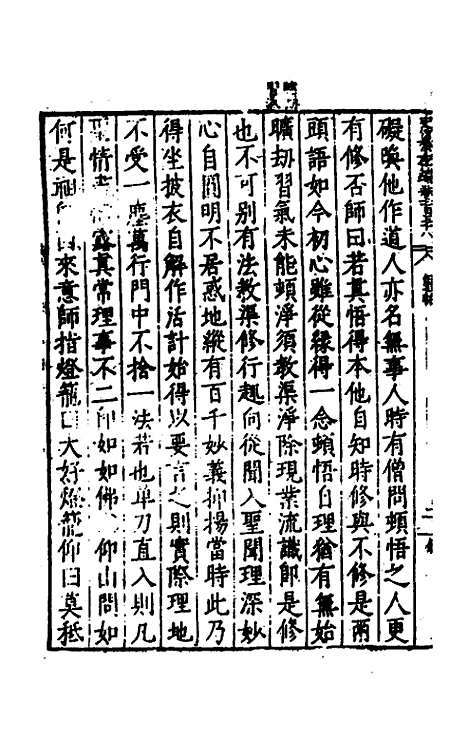 礙喚他作道人亦名無事人時有僧問頓悟之人更
有修否師曰若真悟得本他自知時修與不修是兩
頭語如今初心雖從緣得一念頓悟自理猶有無始
曠劫習氣未能頓淨須教渠淨除現業流識即是修
也不可別有法教渠修行趣向從聞入聖聞理深妙
心自圓明不居惑地縱有百千妙義抑揚當時此乃
得坐披衣自解作活計始得以要言之則實際理地
不受一塵萬行門中不捨一法若也單刀直入則凡
聖情盡 露真常理事不二即如如佛 仰山問如
何是 來意師指燈籠曰大好燈籠仰曰莫秪